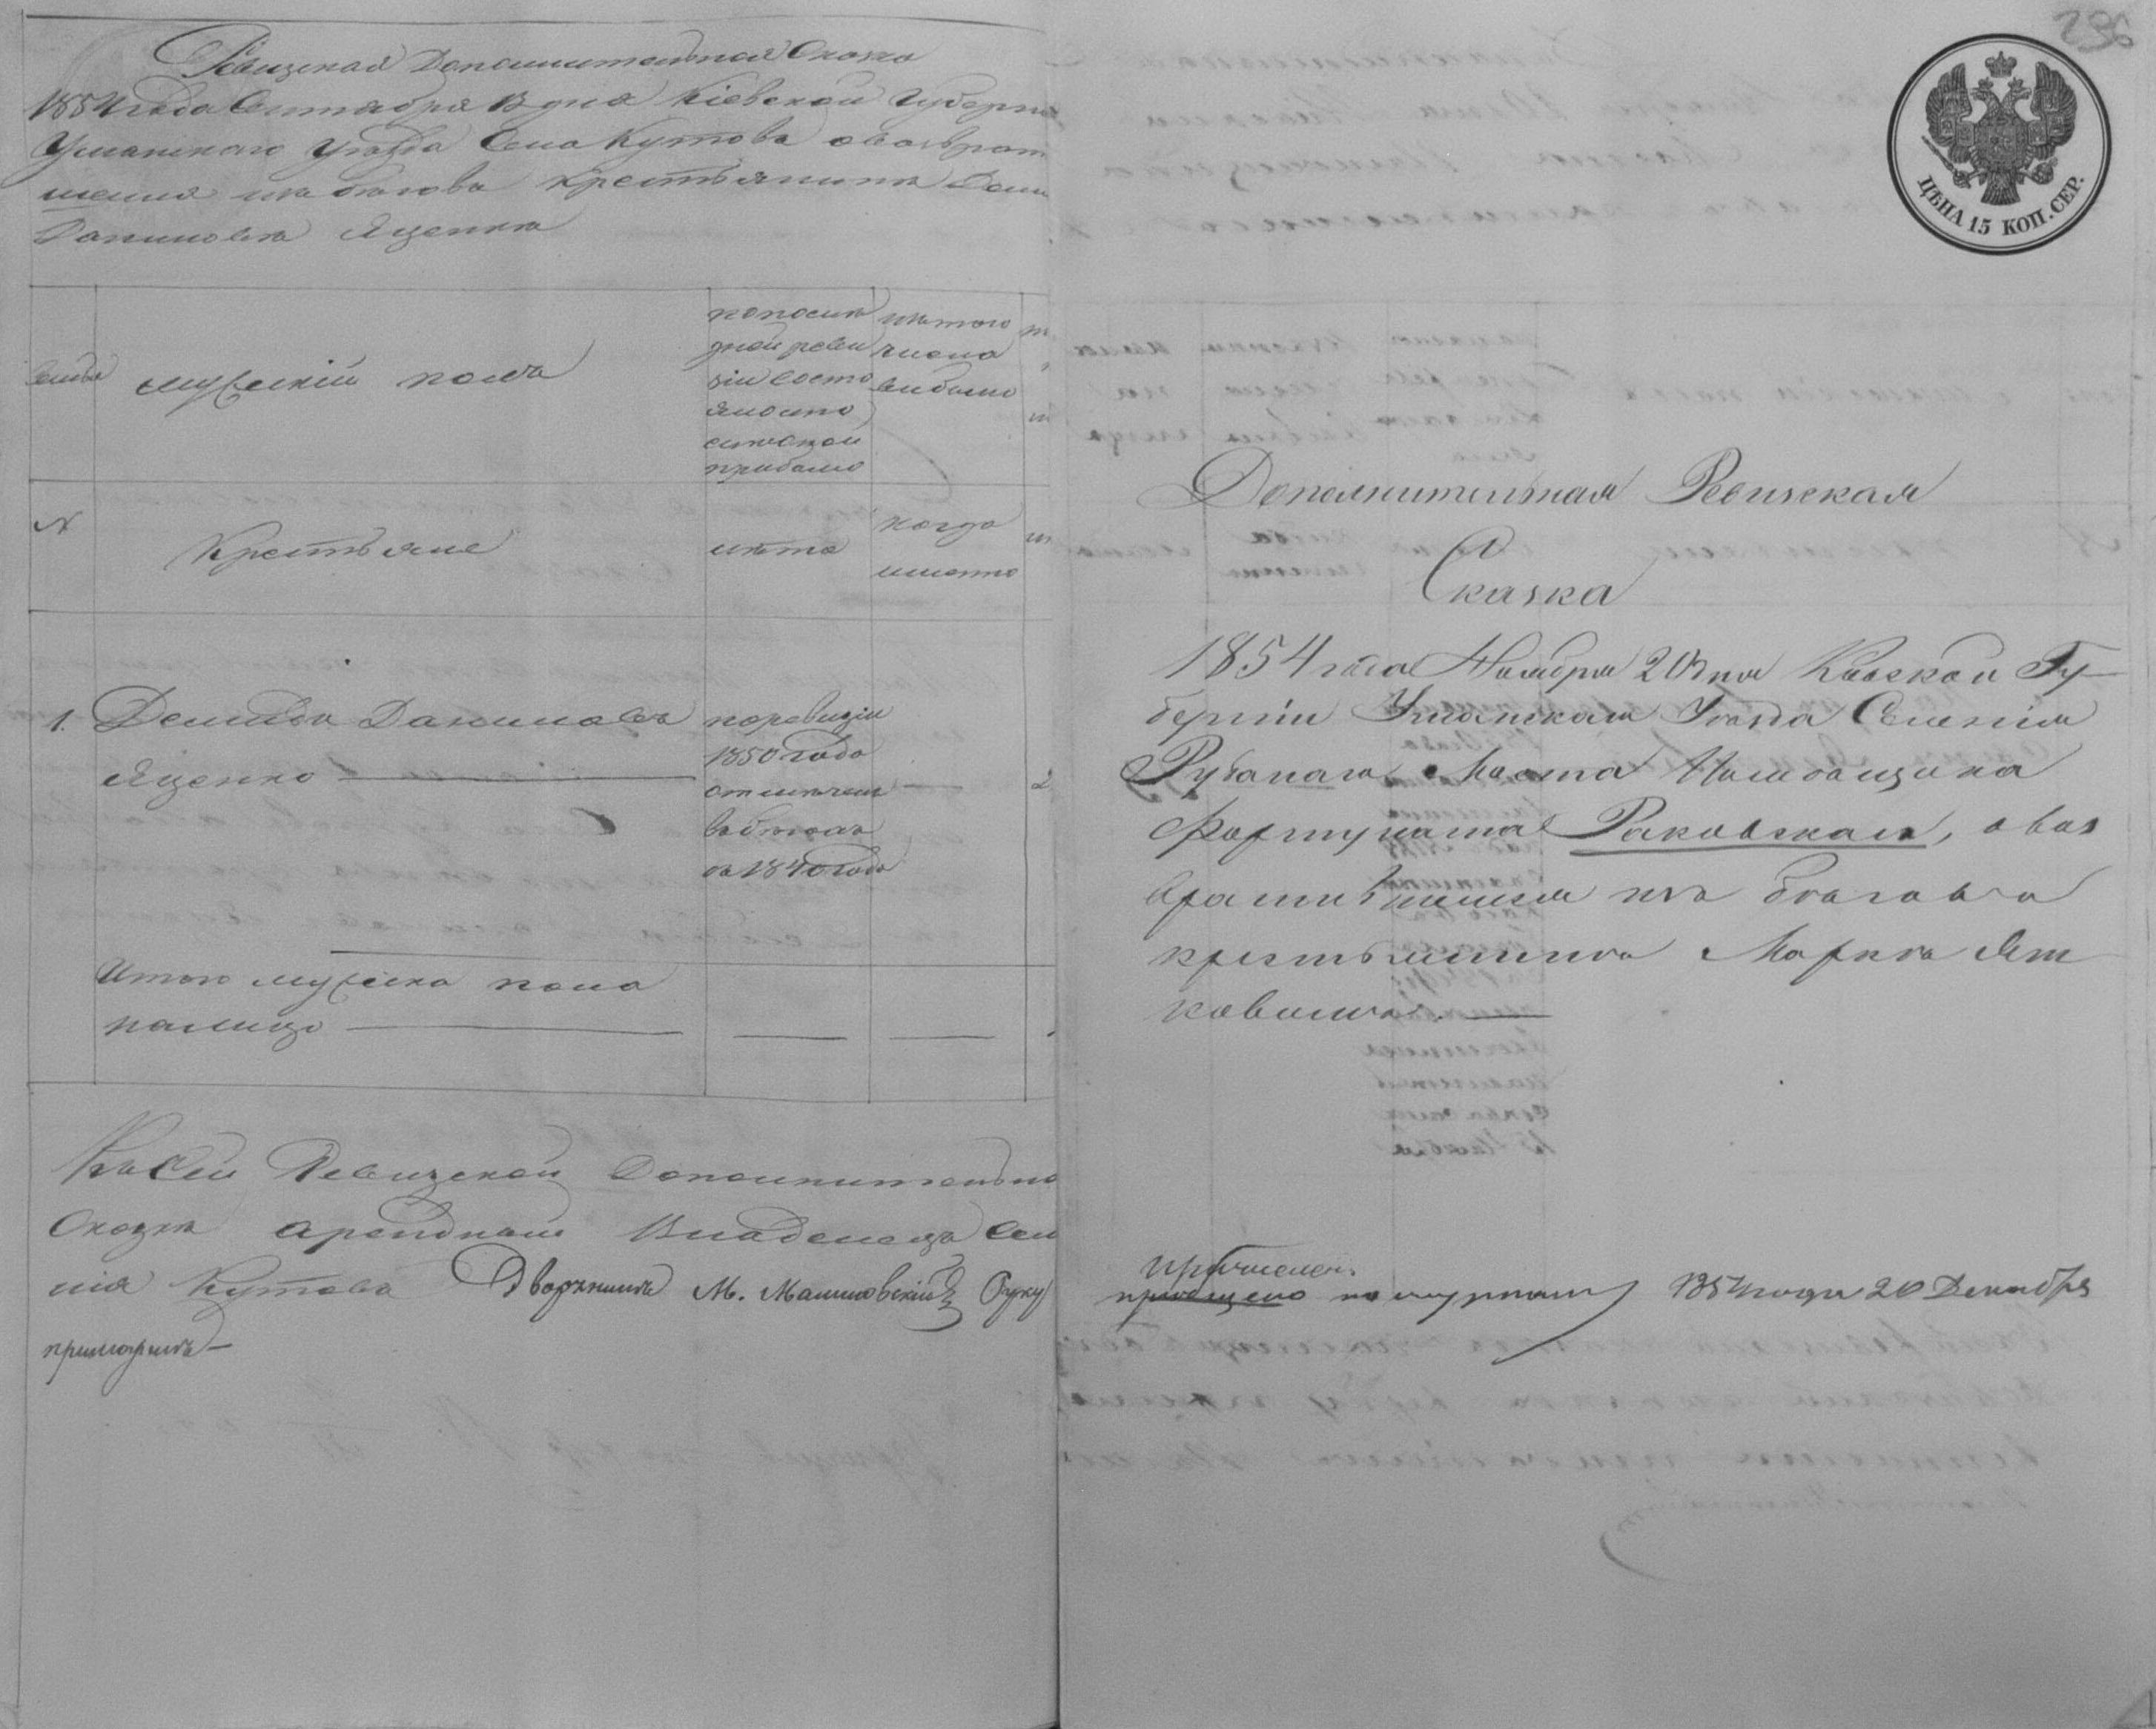 Ревизская Дополнительная Сказка
1854 года Сентября 13 дня Кіевской Губерн
Уманскаго Уѣзда Села Кутова о возврат
шемся изъ бѣговъ крестьянинѣ Деми
Даниловѣ Яценкѣ
Семьи
мужескій полъ
по после
дней реви
зіи состо
яло и по
сле оной
прибыло
изъ того
числа
выбыло
№
Крестьяне
лѣта
когда
именно
1. Демидъ Даниловъ
Яценко
по ревизіи
1850 года
отмечен
въ бѣгах
съ 1840 года
2
Итого мужеска пола
налицо
Къ сей Ревизской Дополнительно
Сказки арендный Владелецъ Сел
нія Кутова Дворянинъ М. Малиновскій Руку
приложилъ
236
ЦѢНА 15 КОП. СЕР.
Дополнительная Ревизская
Сказка
1854 года Ноября 20 дня Кіевской Гу
берніи Уманскаго Уѣзда Селенія
Рубаного Моста Помѣщика
Фортуната Раковскаго, о воз
вратившемся изъ бѣговъ
крестьянинѣ Маркѣ Ят
ковомъ.
причислен
по журналу 1854 года 20 Декабря